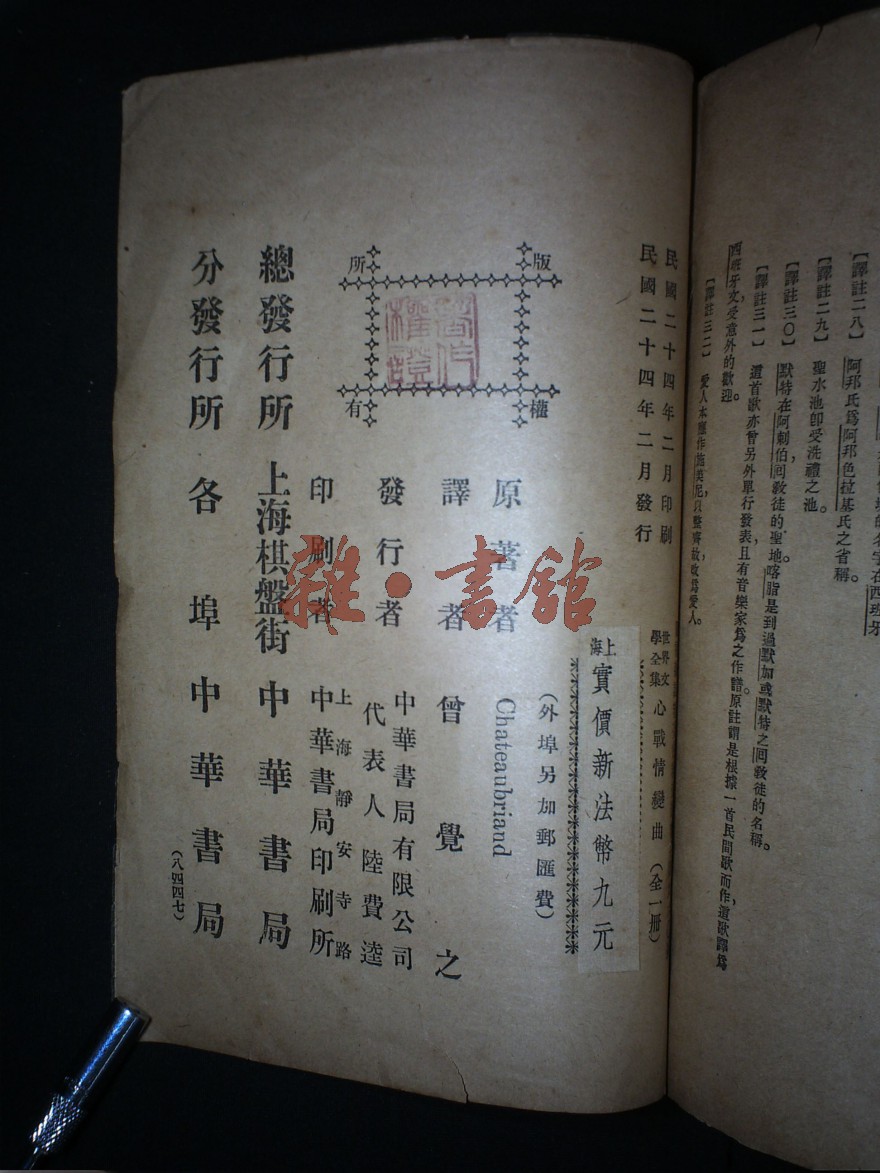 【譯註二八】 阿邦氏爲阿邦色拉基氏之省稱。
【譯註二九】 聖水池卽受洗禮之池。
【譯註三〇】 默特在阿剌伯回敎徒的聖地喀脂是到過默加或默特之回敎徒的名稱。
【譯註三一】 這首歌亦曾另外單行發表且有音樂家爲之作譜原註謂是根據一首民間歌而作，這歌譯爲
西班牙文，受意外的歡迎。
【譯註三二】 愛人本應作施莫尼，只整齊故改爲愛人。
民國二十四年二月印刷
民國二十四年二月發行
世界文學全集 心戰情變曲（全一冊）
上海 實價新法幣九元
（外埠另加郵匯費）
版權所有
著作權證
原著者 Chateaubriand
譯者 曾覺之
發行者 中華書局有限公司
代表人 陸費逵
印刷者 上海靜安寺路
中華書局印刷所
總發行所 上海棋盤街 中華書局
分發行所 各埠中華書局
（八四四七）
雜·書館